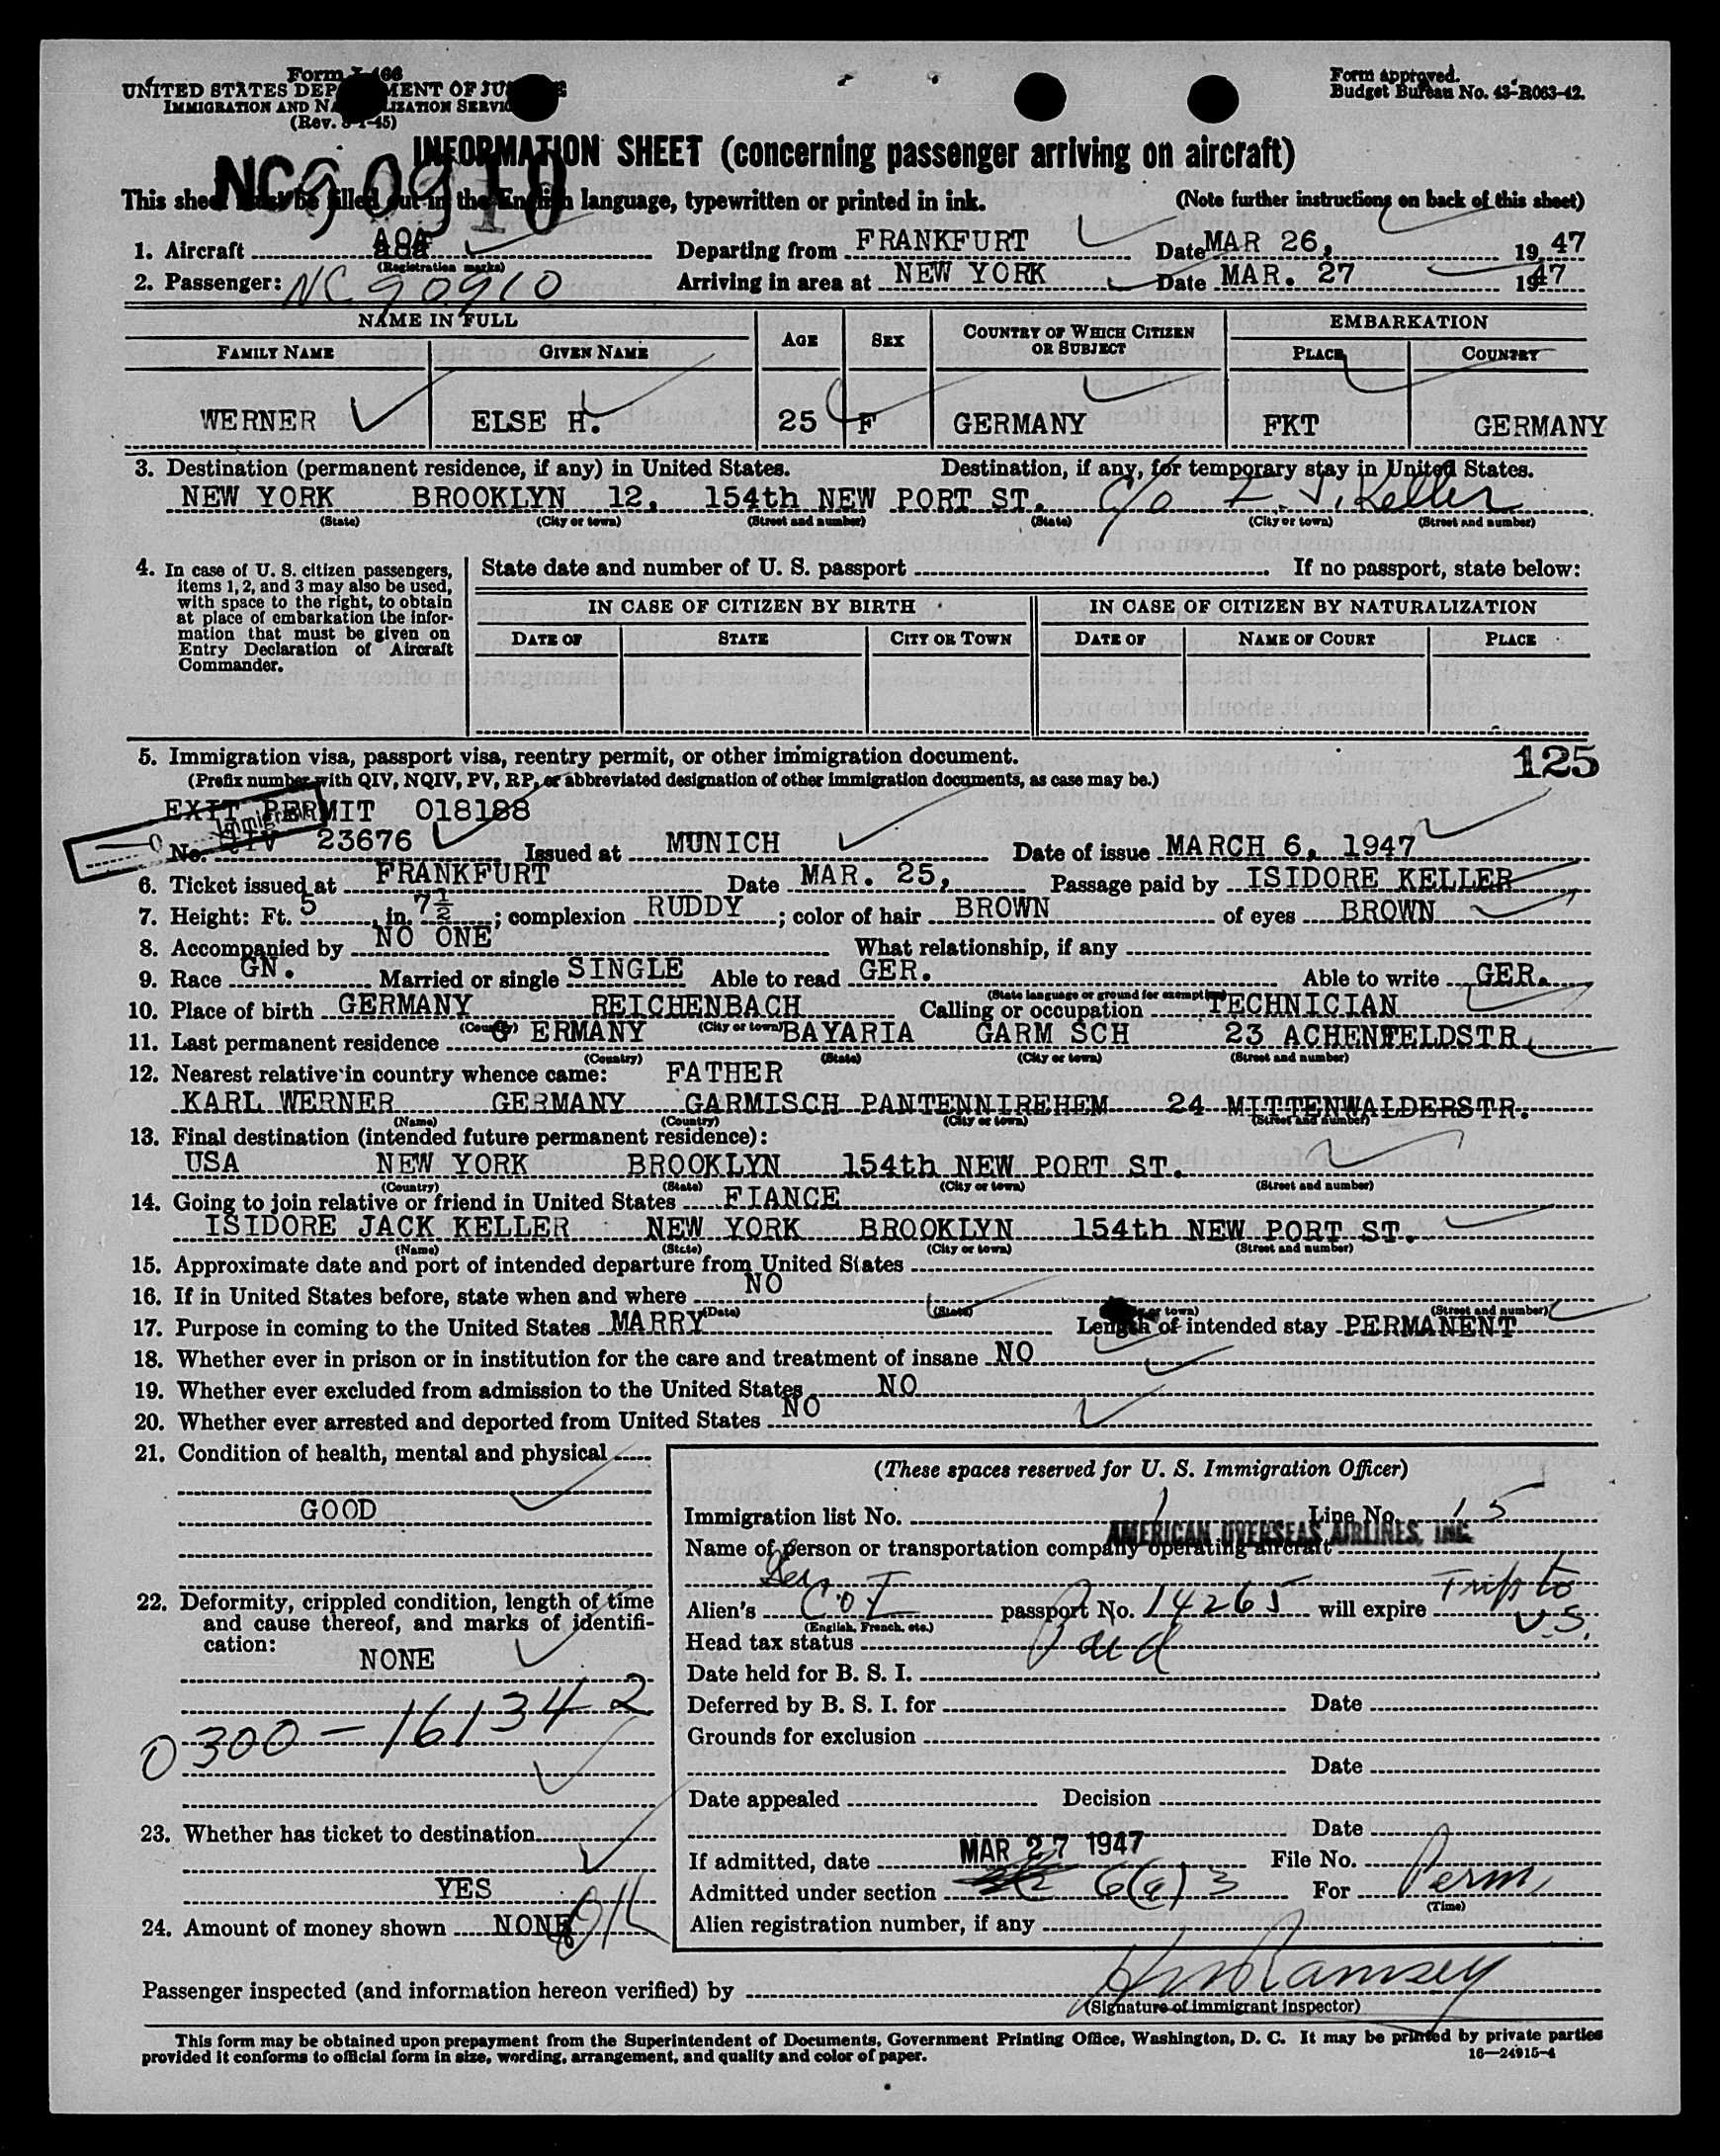 Form I-466
UNITED STATES DEPARTMENT OF JUSTICE
IMMIGRATION AND NATURALIZATION SERVICE
(Rev. 8-1-45)
Form approved.
Budget Bureau No. 43-R063-42.
INFORMATION SHEET (concerning passenger arriving on aircraft)
NC90910
This sheet must be filled out in the English language, typewritten or printed in ink. (Note further instructions on back of this sheet)
1. Aircraft AOA Departing from FRANKFURT Date MAR 26, 1947
(Registration marks)
2. Passenger: NC 90910 Arriving in area at NEW YORK Date MAR. 27 1947
NAME IN FULL AGE SEX COUNTRY OF WHICH CITIZEN OR SUBJECT EMBARKATION
FAMILY NAME GIVEN NAME PLACE COUNTRY
WERNER ELSE H. 25 F GERMANY FKT GERMANY
3. Destination (permanent residence, if any) in United States. Destination, if any, for temporary stay in United States.
NEW YORK BROOKLYN 12, 154th NEW PORT ST. c/o I. J. Keller
(State) (City or town) (Street and number) (State) (City or town) (Street and number)
4. In case of U. S. citizen passengers, items 1, 2, and 3 may also be used, with space to the right, to obtain at place of embarkation the information that must be given on Entry Declaration of Aircraft Commander.
State date and number of U. S. passport If no passport, state below:
IN CASE OF CITIZEN BY BIRTH IN CASE OF CITIZEN BY NATURALIZATION
DATE OF STATE CITY OR TOWN DATE OF NAME OF COURT PLACE
5. Immigration visa, passport visa, reentry permit, or other immigration document. 125
(Prefix number with QIV, NQIV, PV, RP, or abbreviated designation of other immigration documents, as case may be.)
EXIT PERMIT 018188
Immigration
No. QIV 23676 Issued at MUNICH Date of issue MARCH 6, 1947
6. Ticket issued at FRANKFURT Date MAR. 25, Passage paid by ISIDORE KELLER
7. Height: Ft. 5 in. 7½; complexion RUDDY; color of hair BROWN of eyes BROWN
8. Accompanied by NO ONE What relationship, if any
9. Race GN. Married or single SINGLE Able to read GER. Able to write GER.
(State language or ground for exemption)
10. Place of birth GERMANY REICHENBACH Calling or occupation TECHNICIAN
(Country) (City or town)
11. Last permanent residence G ERMANY BAYARIA GARM SCH 23 ACHENFELDSTR.
(Country) (State) (City or town) (Street and number)
12. Nearest relative in country whence came: FATHER
KARL WERNER GERMANY GARMISCH PANTENNIREHEM 24 MITTENWALDERSTR.
(Name) (Country) (City or town) (Street and number)
13. Final destination (intended future permanent residence):
USA NEW YORK BROOKLYN 154th NEW PORT ST.
(Country) (State) (City or town) (Street and number)
14. Going to join relative or friend in United States FIANCE
ISIDORE JACK KELLER NEW YORK BROOKLYN 154th NEW PORT ST.
(Name) (State) (City or town) (Street and number)
15. Approximate date and port of intended departure from United States
16. If in United States before, state when and where NO
(Date) (State) (City or town) (Street and number)
17. Purpose in coming to the United States MARRY Length of intended stay PERMANENT
18. Whether ever in prison or in institution for the care and treatment of insane NO
19. Whether ever excluded from admission to the United States NO
20. Whether ever arrested and deported from United States NO
21. Condition of health, mental and physical
GOOD
22. Deformity, crippled condition, length of time and cause thereof, and marks of identification:
NONE
0300-161342
23. Whether has ticket to destination
YES
24. Amount of money shown NONE OK
(These spaces reserved for U. S. Immigration Officer)
Immigration list No. 1 Line No. 15
AMERICAN OVERSEAS AIRLINES, INC.
Name of person or transportation company operating aircraft
Alien's Ger C of I passport No. 14265 will expire Trip to U.S.
(English, French, etc.)
Head tax status Paid
Date held for B. S. I.
Deferred by B. S. I. for Date
Grounds for exclusion
Date
Date appealed Decision
Date
If admitted, date MAR 27 1947 File No.
Admitted under section 6(a)3 For Perm
(Time)
Alien registration number, if any
Passenger inspected (and information hereon verified) by Ramsey
(Signature of immigrant inspector)
This form may be obtained upon prepayment from the Superintendent of Documents, Government Printing Office, Washington, D. C. It may be printed by private parties
provided it conforms to official form in size, wording, arrangement, and quality and color of paper. 16—24915-4